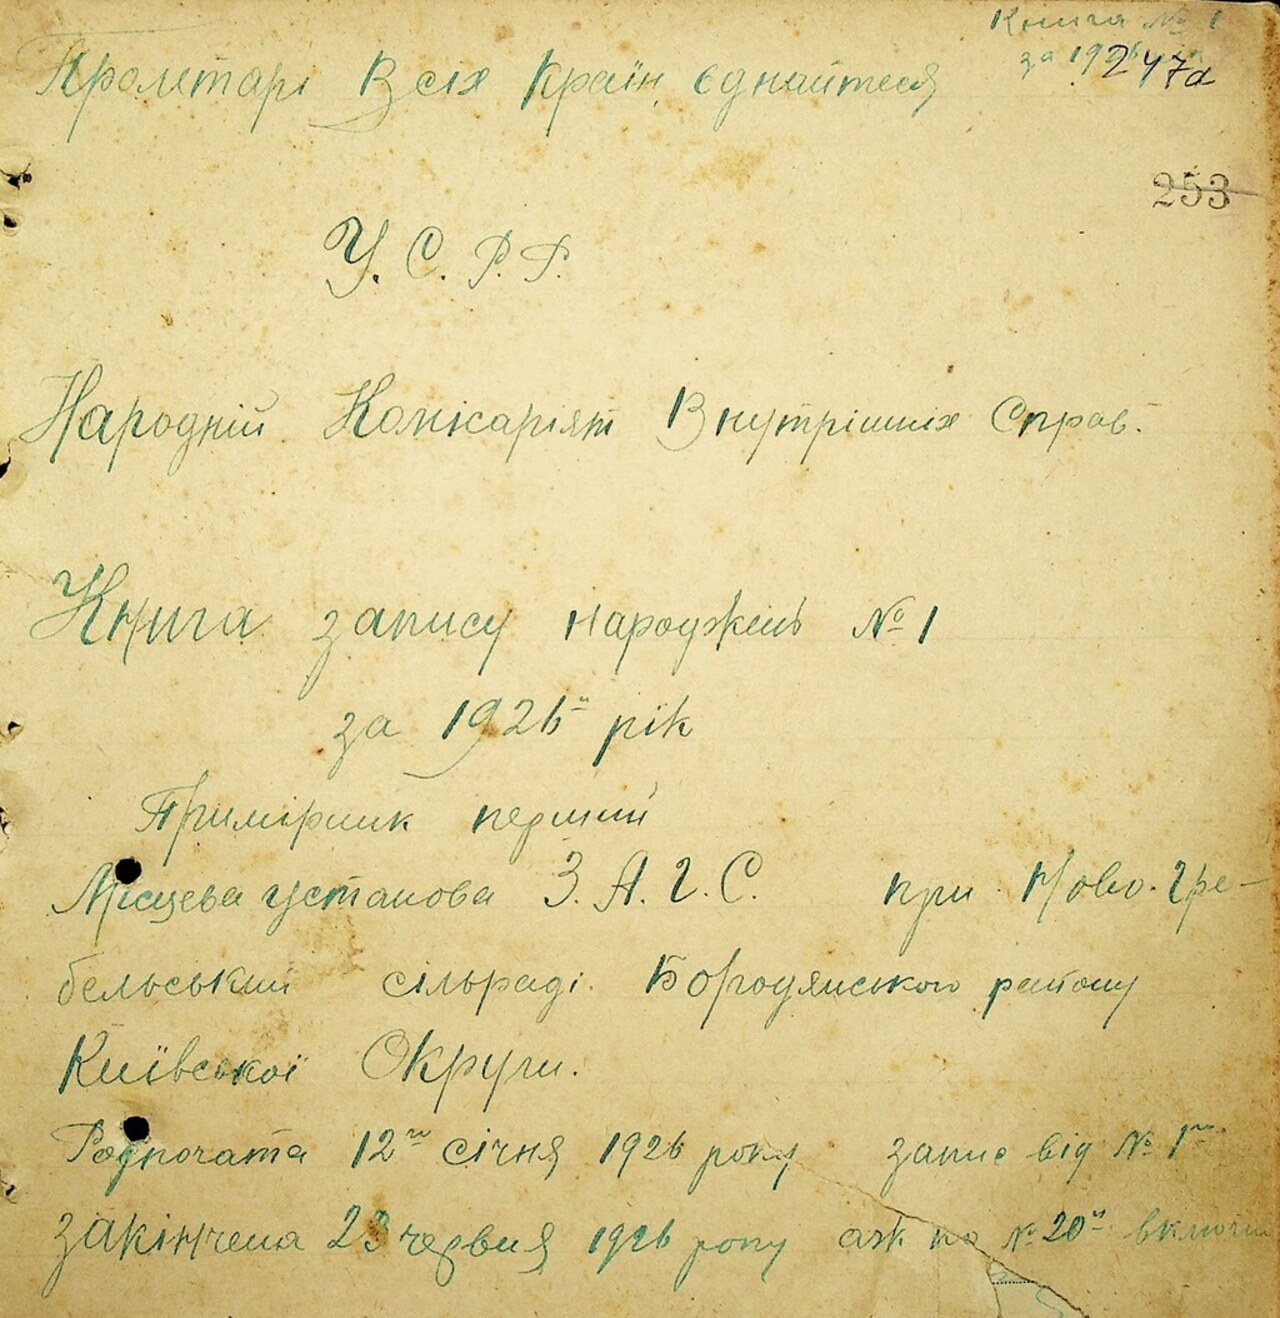 Книга № 1
за 1926
247а
Пролетарі Всіх Країн, єднайтеся
253
У. С. Р. Р.
Народній Комісаріят Внутрішніх Справ.
Книга запису народжень № 1
за 1926й рік
Примірник перший
Місцева установа З. А. Г. С. при Ново-Гре-
бельський сільраді Бородянського району
Київської Округи.
Розпочата 12го січня 1926 року запис від № 1го
закінчена 23 червня 1926 року аж по № 20й включн